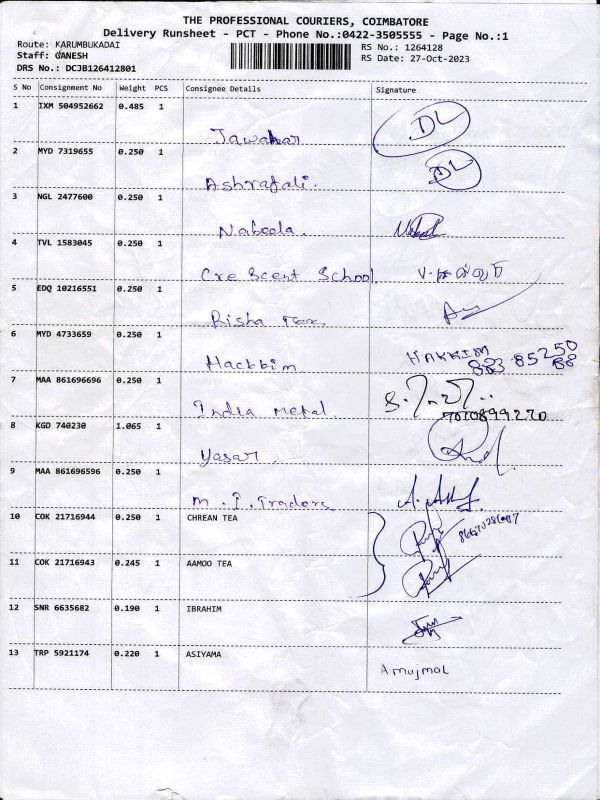 THE PROFESSIONAL COURIERS, COIMBATORE
Delivery Runsheet - PCT - Phone No.:0422-3505555 - Page No.:1
Route: KARUMBUKADAI RS No.: 1264128
Staff: GANESH RS Date: 27-Oct-2023
DRS No.: DCJB126412801
S No Consignment No Weight PCS Consignee Details Signature
1 IXM 504952662 0.485 1
Jawahar DL
2 MYD 7319655 0.250 1
Ashrafali. DL
3 NGL 2477600 0.250 1
Nabeela.
4 TVL 1583045 0.250 1
Crescent School
5 EDQ 10216551 0.250 1
Risha Tex.
6 MYD 4733659 0.250 1
Hackbim HAKKIM
7 MAA 861696696 0.250 1
India metal 7010899270
8 KGD 740230 1.065 1
Yasar.
9 MAA 861696596 0.250 1
M.I. Traders
10 COK 21716944 0.250 1 CHREAN TEA
11 COK 21716943 0.245 1 AAMOO TEA
12 SNR 6635682 0.190 1 IBRAHIM
13 TRP 5921174 0.220 1 ASIYAMA
Amujmal